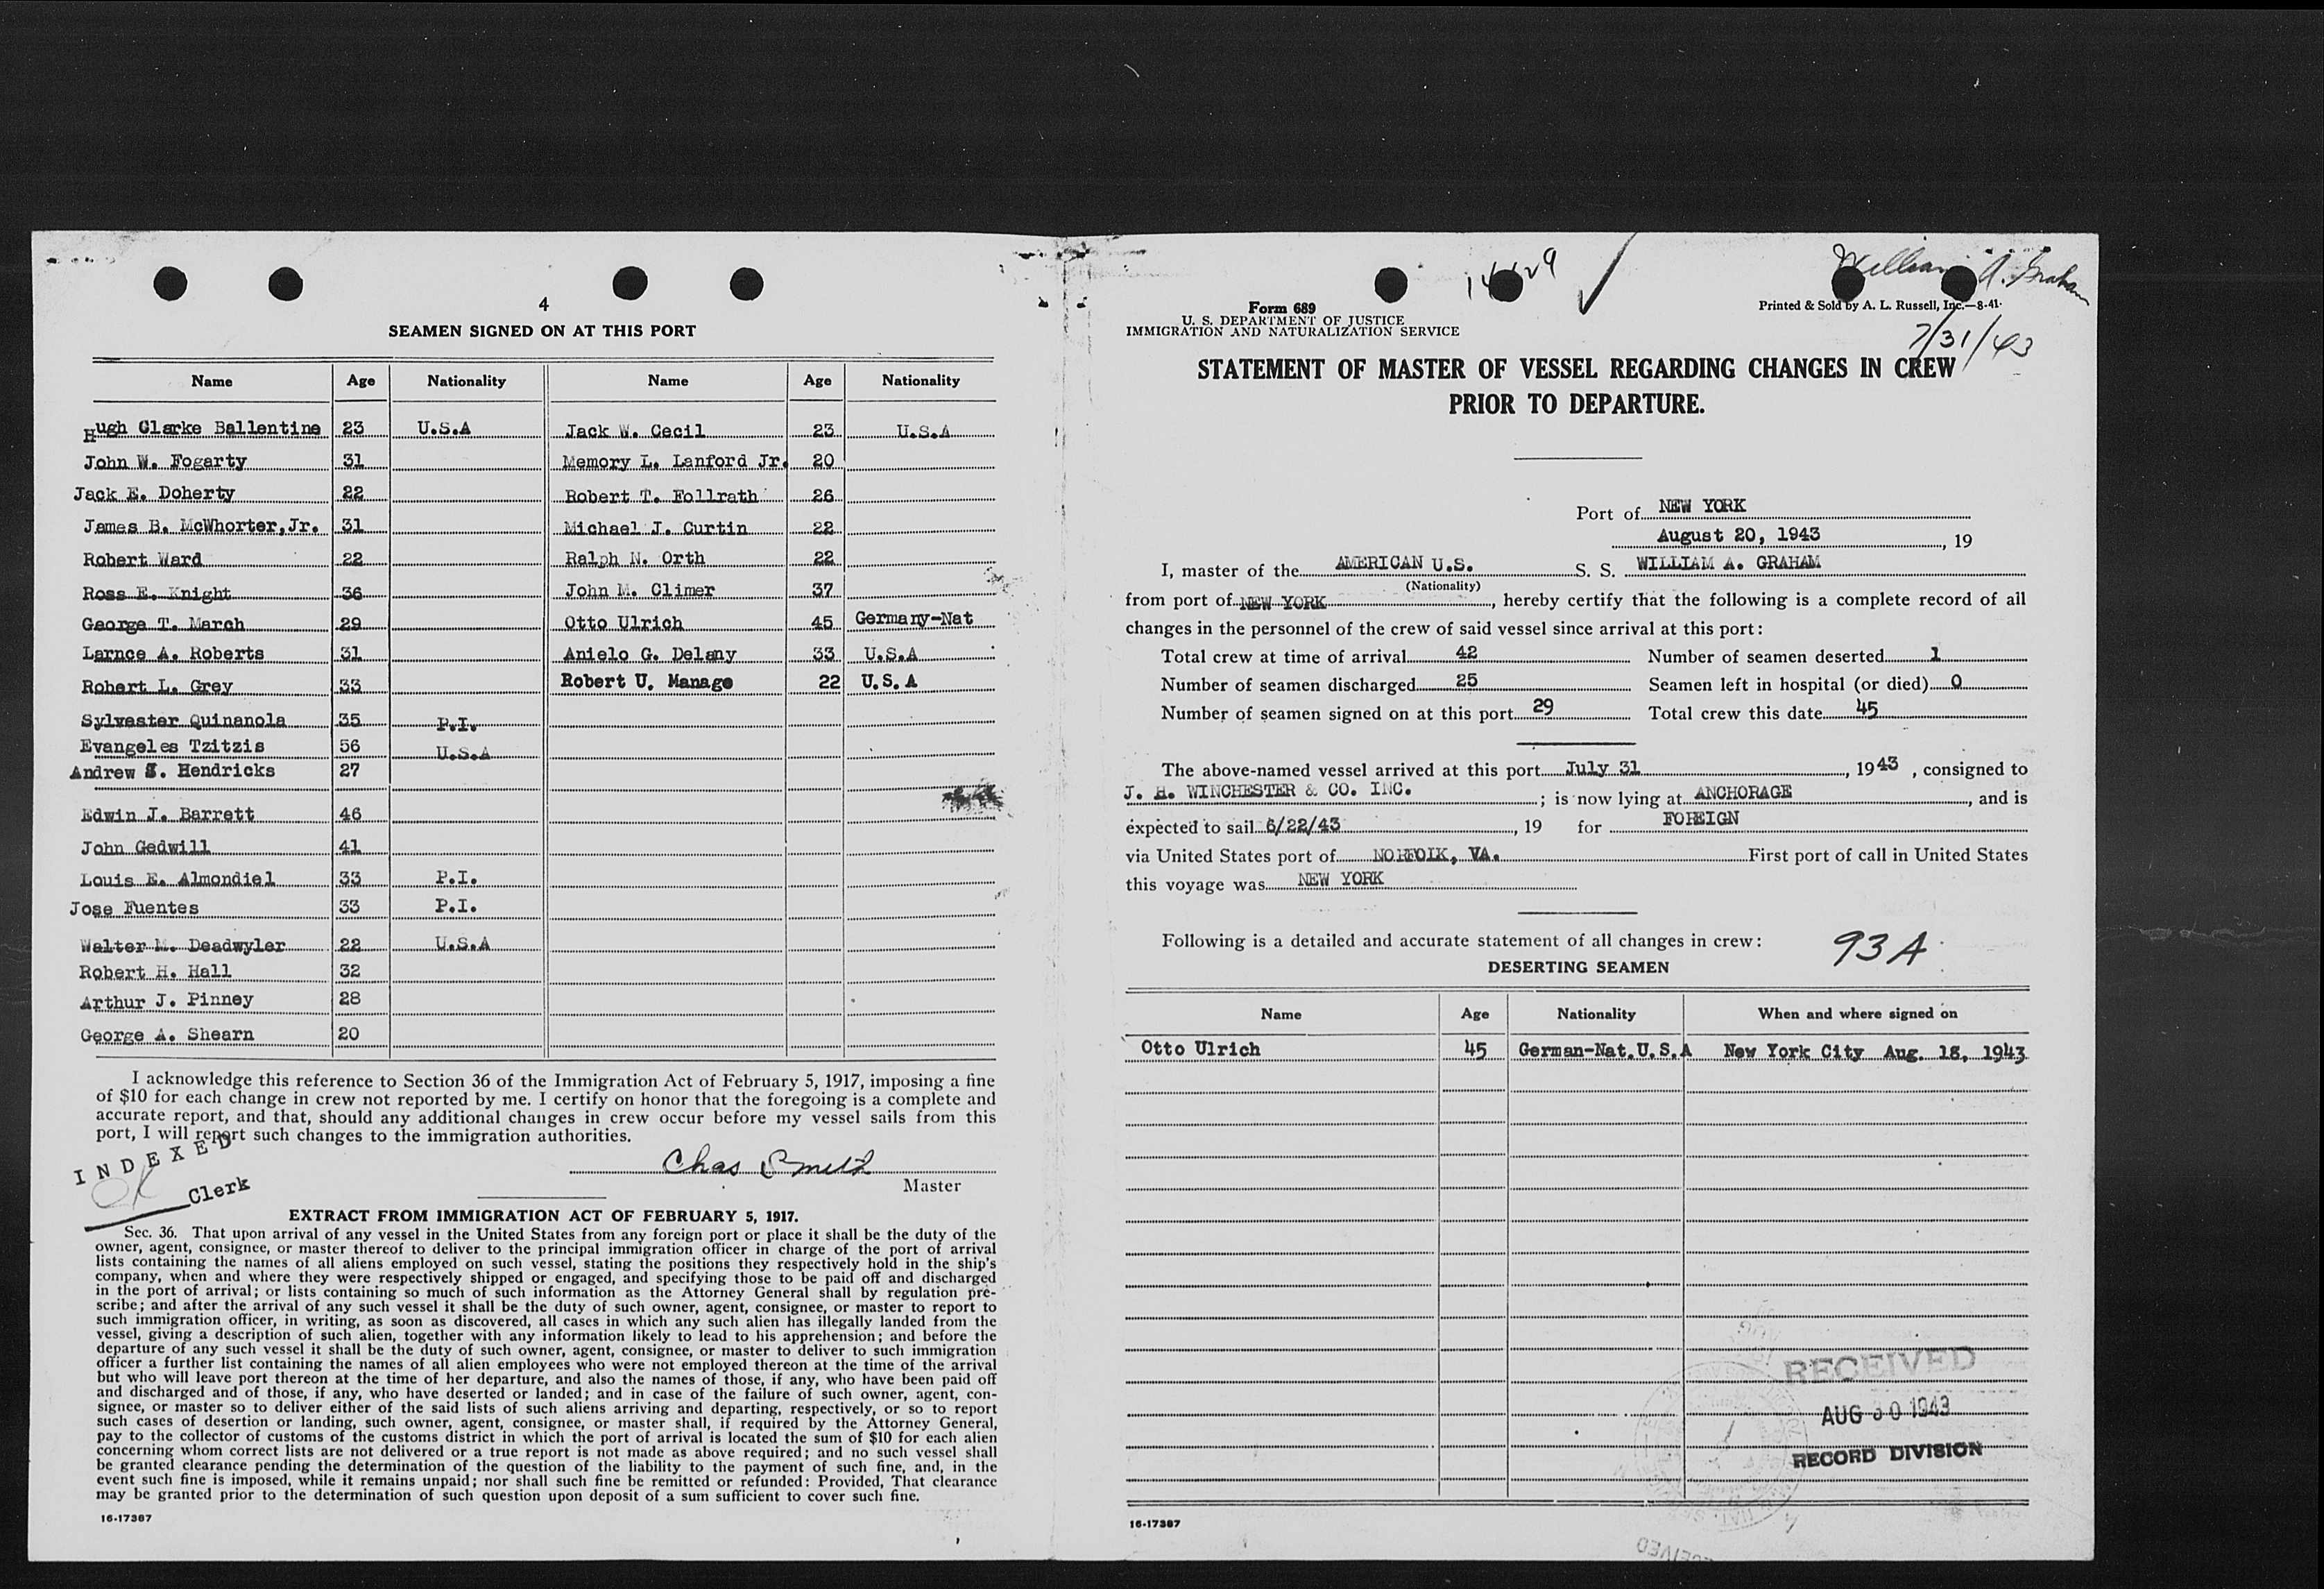 4
SEAMEN SIGNED ON AT THIS PORT
Name Age Nationality Name Age Nationality
Hugh Clarke Ballentine 23 U.S.A Jack W. Cecil 23 U.S.A
John W. Fogarty 31 Memory L. Lanford Jr. 20
Jack E. Doherty 22 Robert T. Follrath 26
James B. McWhorter,Jr. 31 Michael J. Curtin 22
Robert Ward 22 Ralph N. Orth 22
Ross E. Knight 36 John M. Climer 37
George T. March 29 Otto Ulrich 45 Germany-Nat
Larnce A. Roberts 31 Anielo G. Delany 33 U.S.A
Robert L. Grey 33 Robert U. Manago 22 U.S.A
Sylvester Quinanola 35 P.I.
Evangeles Tzitzis 56 U.S.A
Andrew S. Hendricks 27
Edwin J. Barrett 46
John Gedwill 41
Louis E. Almondiel 33 P.I.
Jose Fuentes 33 P.I.
Walter M. Deadwyler 22 U.S.A
Robert H. Hall 32
Arthur J. Pinney 28
George A. Shearn 20
I acknowledge this reference to Section 36 of the Immigration Act of February 5, 1917, imposing a fine
of $10 for each change in crew not reported by me. I certify on honor that the foregoing is a complete and
accurate report, and that, should any additional changes in crew occur before my vessel sails from this
port, I will report such changes to the immigration authorities.
INDEXED
OK Clerk
Chas Smith
Master
EXTRACT FROM IMMIGRATION ACT OF FEBRUARY 5, 1917.
Sec. 36. That upon arrival of any vessel in the United States from any foreign port or place it shall be the duty of the
owner, agent, consignee, or master thereof to deliver to the principal immigration officer in charge of the port of arrival
lists containing the names of all aliens employed on such vessel, stating the positions they respectively hold in the ship's
company, when and where they were respectively shipped or engaged, and specifying those to be paid off and discharged
in the port of arrival; or lists containing so much of such information as the Attorney General shall by regulation pre-
scribe; and after the arrival of any such vessel it shall be the duty of such owner, agent, consignee, or master to report to
such immigration officer, in writing, as soon as discovered, all cases in which any such alien has illegally landed from the
vessel, giving a description of such alien, together with any information likely to lead to his apprehension; and before the
departure of any such vessel it shall be the duty of such owner, agent, consignee, or master to deliver to such immigration
officer a further list containing the names of all alien employees who were not employed thereon at the time of the arrival
but who will leave port thereon at the time of her departure, and also the names of those, if any, who have been paid off
and discharged and of those, if any, who have deserted or landed; and in case of the failure of such owner, agent, con-
signee, or master so to deliver either of the said lists of such aliens arriving and departing, respectively, or so to report
such cases of desertion or landing, such owner, agent, consignee, or master shall, if required by the Attorney General,
pay to the collector of customs of the customs district in which the port of arrival is located the sum of $10 for each alien
concerning whom correct lists are not delivered or a true report is not made as above required; and no such vessel shall
be granted clearance pending the determination of the question of the liability to the payment of such fine, and, in the
event such fine is imposed, while it remains unpaid; nor shall such fine be remitted or refunded: Provided, That clearance
may be granted prior to the determination of such question upon deposit of a sum sufficient to cover such fine.
16-17387
William A. Graham
Form 689
U. S. DEPARTMENT OF JUSTICE
IMMIGRATION AND NATURALIZATION SERVICE
Printed & Sold by A. L. Russell, Inc.—8-41
7/31/43
STATEMENT OF MASTER OF VESSEL REGARDING CHANGES IN CREW
PRIOR TO DEPARTURE.
Port of NEW YORK
August 20, 1943, 19
I, master of the AMERICAN U.S. S. S. WILLIAM A. GRAHAM
(Nationality)
from port of NEW YORK, hereby certify that the following is a complete record of all
changes in the personnel of the crew of said vessel since arrival at this port:
Total crew at time of arrival 42 Number of seamen deserted 1
Number of seamen discharged 25 Seamen left in hospital (or died) 0
Number of seamen signed on at this port 29 Total crew this date 45
The above-named vessel arrived at this port July 31, 1943, consigned to
J. H. WINCHESTER & CO. INC.; is now lying at ANCHORAGE, and is
expected to sail 6/22/43, 19 for FOREIGN
via United States port of NORFOLK, VA. First port of call in United States
this voyage was NEW YORK
Following is a detailed and accurate statement of all changes in crew:
93A
DESERTING SEAMEN
Name Age Nationality When and where signed on
Otto Ulrich 45 German-Nat.U.S.A New York City Aug. 18, 1943
RECEIVED
AUG 30 1943
RECORD DIVISION
16-17387